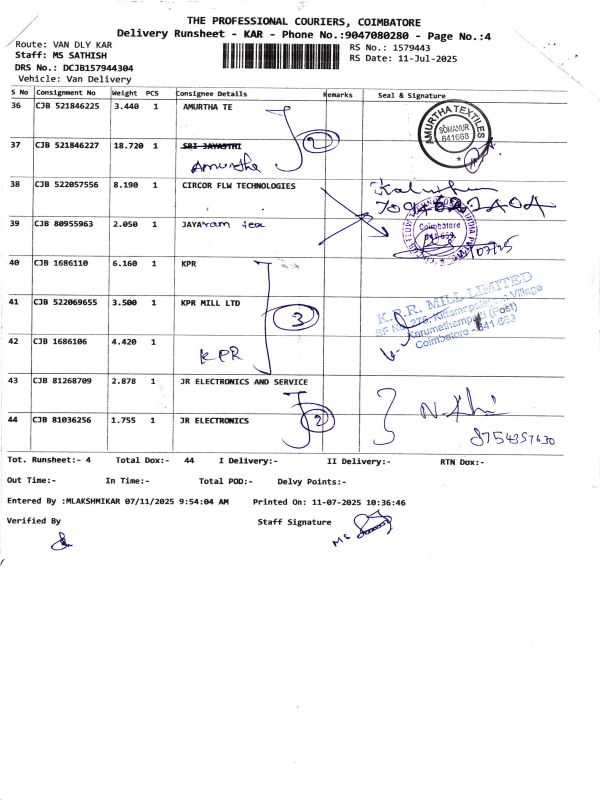 THE PROFESSIONAL COURIERS, COIMBATORE
Delivery Runsheet - KAR - Phone No.:9047080280 - Page No.:4
Route: VAN DLY KAR
Staff: MS SATHISH
DRS No.: DCJB157944304
Vehicle: Van Delivery
RS No.: 1579443
RS Date: 11-Jul-2025
S No Consignment No Weight PCS Consignee Details Remarks Seal & Signature
36 CJB 521846225 3.440 1 AMURTHA TE
2
AMURTHA TEXTILES
SOMANUR
641668
37 CJB 521846227 18.720 1 SRI JAYASTRI
Amurtha
38 CJB 522057556 8.190 1 CIRCOR FLW TECHNOLOGIES
39 CJB 80955963 2.050 1 JAYAram tex
Coimbatore
40 CJB 1686110 6.160 1 KPR
41 CJB 522069655 3.500 1 KPR MILL LTD
3
K.P.R. MILL LIMITED
SF No. 276, Kittampalayam Village
Karumathampatti (Post)
Coimbatore - 641 659
42 CJB 1686106 4.420 1
KPR
43 CJB 81268709 2.878 1 JR ELECTRONICS AND SERVICE
44 CJB 81036256 1.755 1 JR ELECTRONICS
2
8754357630
Tot. Runsheet:- 4 Total Dox:- 44 I Delivery:- II Delivery:- RTN Dox:-
Out Time:- In Time:- Total POD:- Delvy Points:-
Entered By :MLAKSHMIKAR 07/11/2025 9:54:04 AM Printed On: 11-07-2025 10:36:46
Verified By Staff Signature
MS